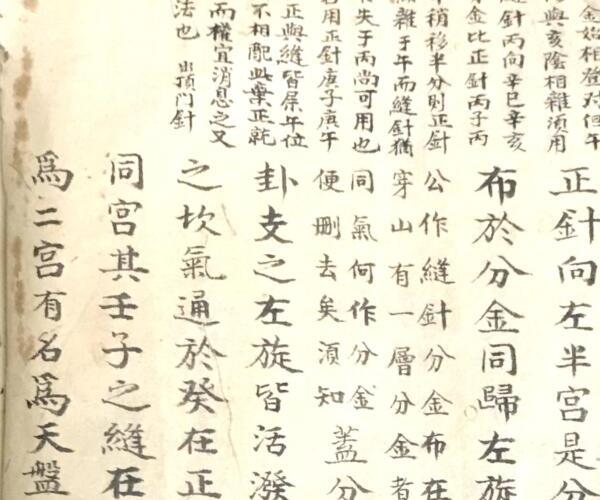 金始相登对但午
與亥陰相雜須用
縫針丙向辛巳辛亥
金比正針丙子丙
稍移半分則正針
雜于午而縫針猶
失于丙尚可用也
用正針庚子庚午
正與縫皆屬午位
不相配此棄正就
而權宜消息之又
法也 出頂門針
正針向左半宮是分
布於分金同歸左旋
公作縫針分金布在
穿山有一層分金者
同氣何作分金
便刪去矣須知
蓋分
卦支之左旋皆活潑
之坎氣通於癸在正
同宮其壬子之縫在
為二宮有名為天盤